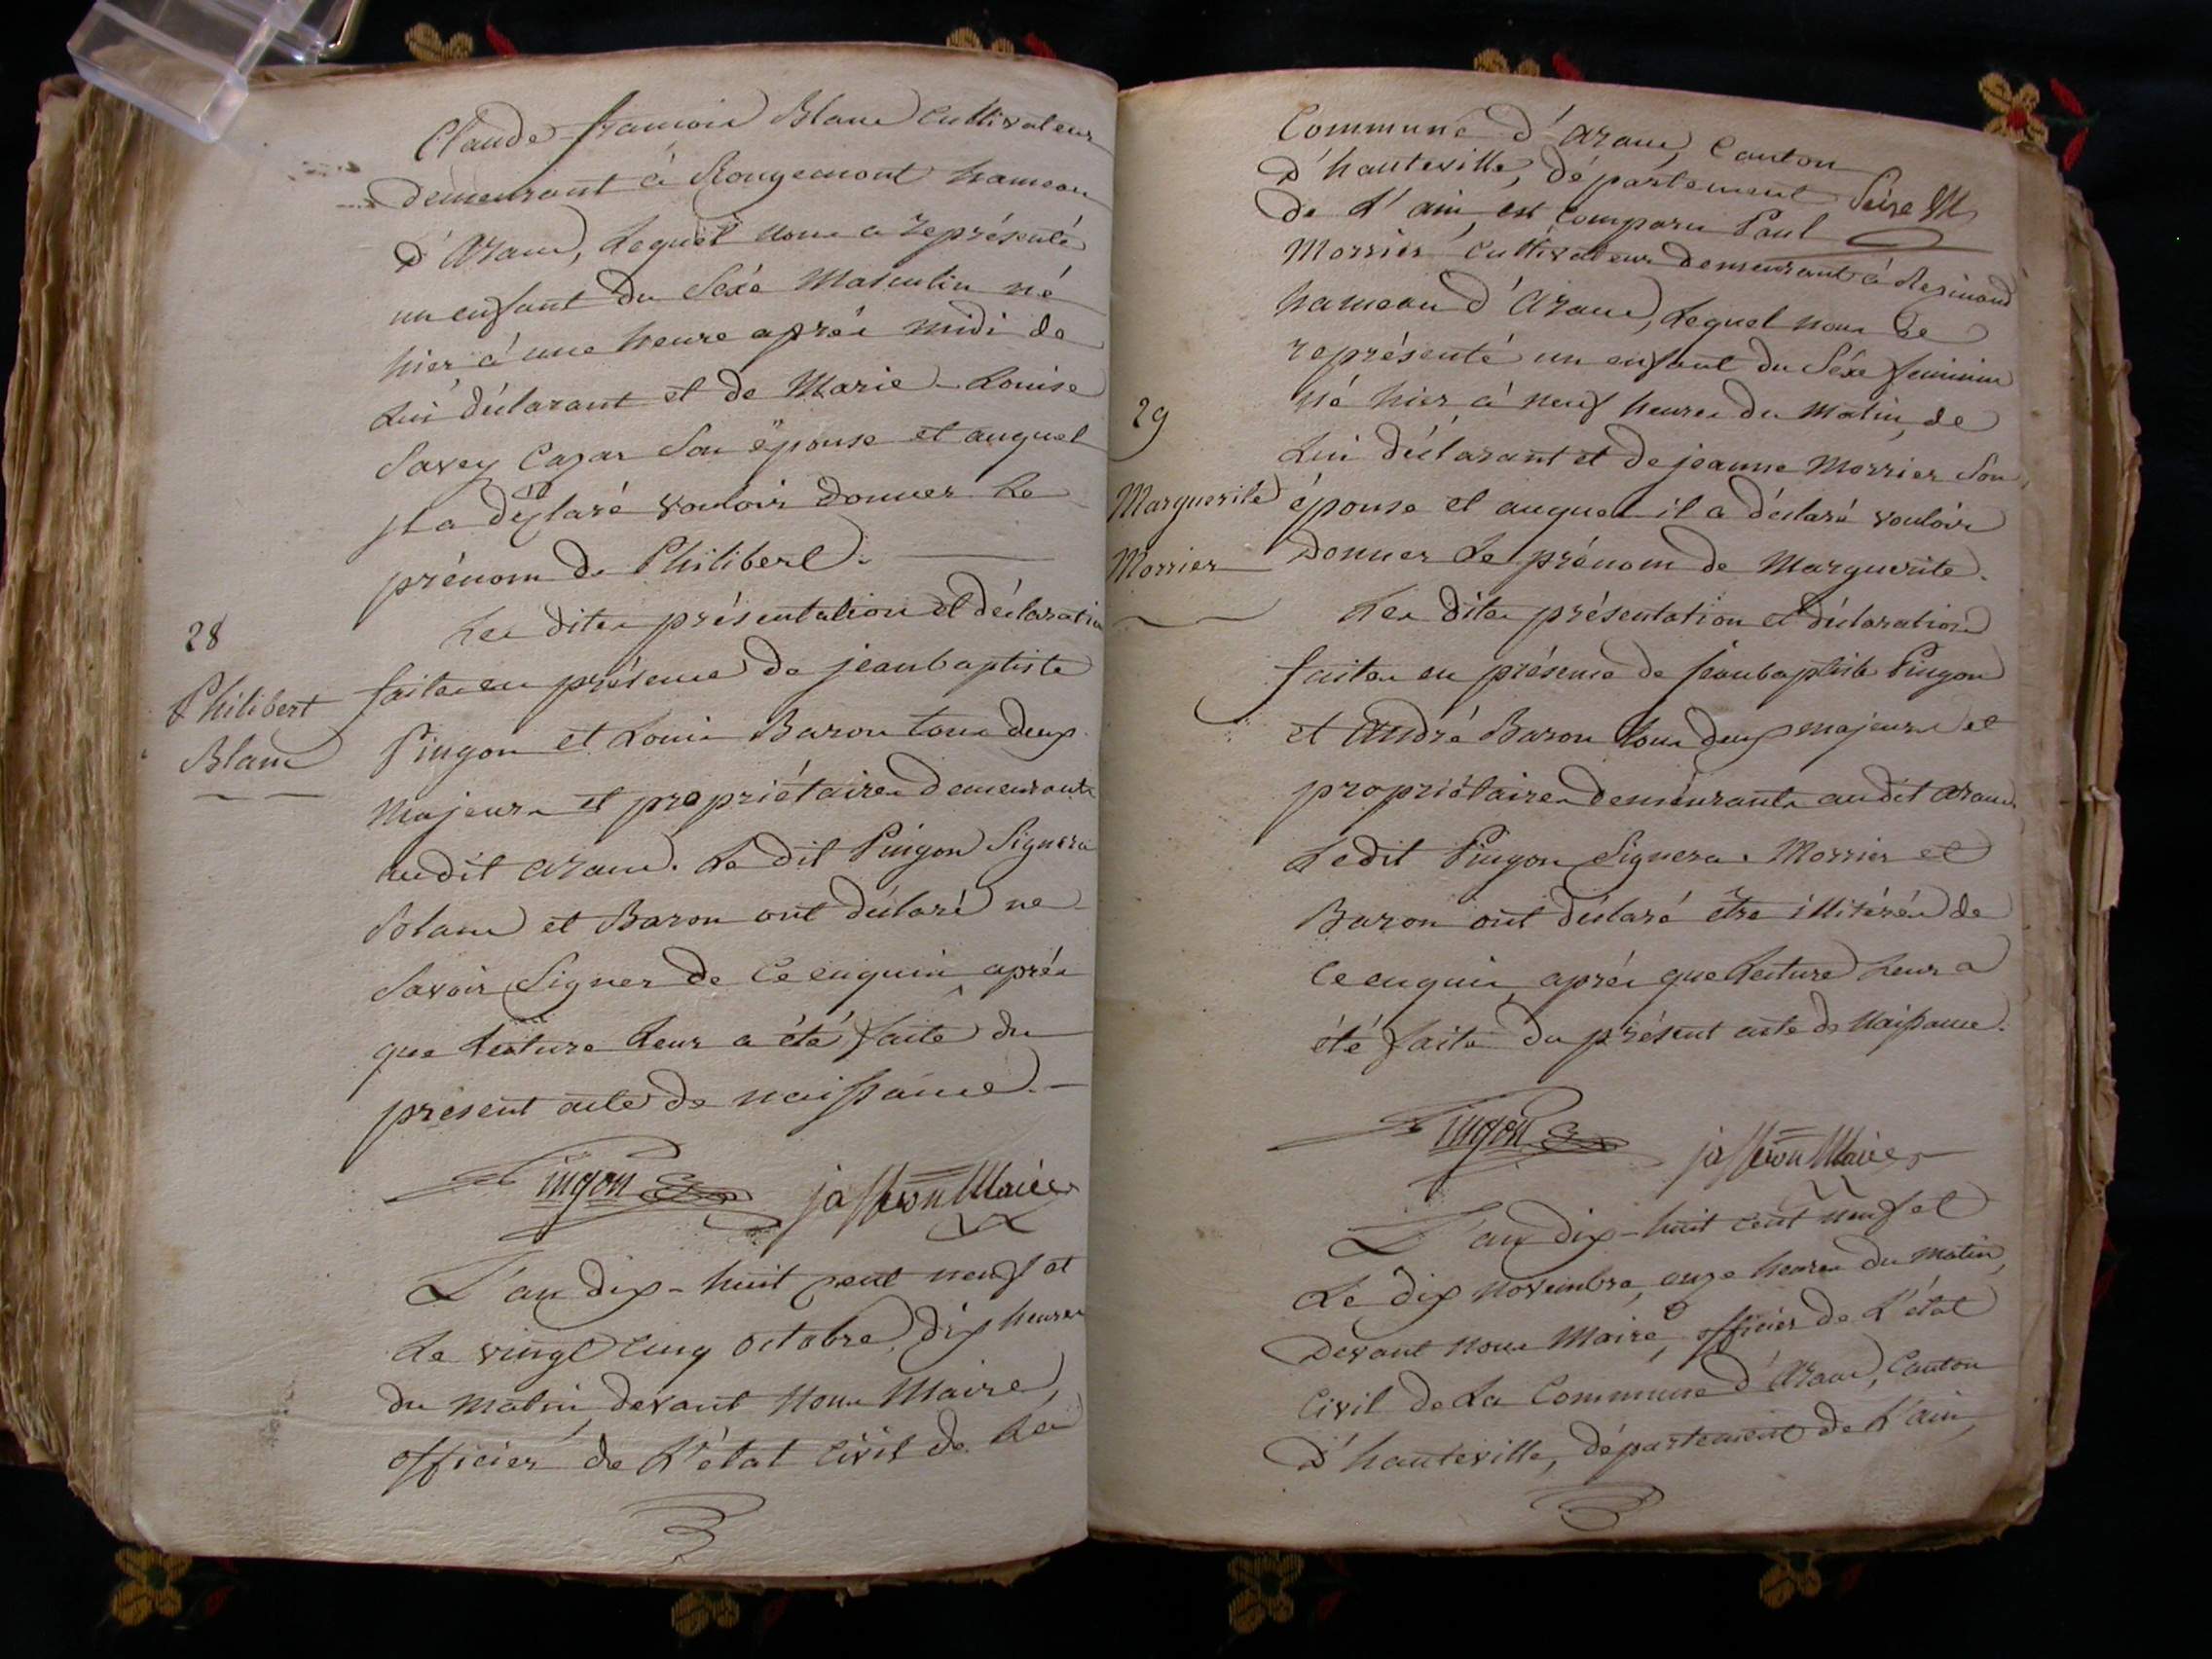 Claude françois Blanc Cultivateur
demeurant à Rougemont hameau
d'Aranc, Lequel nous a représenté
un enfant du Séxe Masculin né
hier à une heure après midi de
Lui déclarant et de Marie-Louise
Savey Casar Son épouse et auquel
il a déclaré vouloir donner Le
prénom de Philibert.
Les dites présentation et déclaration
28
faites en présence de jeanbaptiste
Philibert
Pingon et Louis Baron tous deux
Blanc
Majeurs et propriétaires demeurants
audit Aranc. Le dit Pingon Signera
Blanc et Baron ont déclaré ne
Savoir Signer de Ce enquis, après
que Lecture Leur a été faite du
présent acte de naissance.
Pingon jasseron Maire
L'an dix-huit cent neuf et
Le vingt cinq octobre, dix heures
du matin, devant Nous Maire,
officier de L'état Civil de La
Commune d'Aranc, Canton
d'hauteville, département
de L'ain, est comparu Paul
Morrier Cultivateur demeurant à Resinand
hameau d'Aranc, Lequel nous a
représenté un enfant du Séxe feminin
né hier à neuf heures du Matin, de
29
Lui déclarant et de jeanne Morrier Son
Marguerite
épouse et auquel il a déclaré vouloir
Morrier
Donner Le prénom de Marguerite.
Les dites présentation et déclaration
faites en présence de jeanbaptiste Pingon
et André Baron tous deux majeurs et
propriétaires demeurants audit Aranc.
Ledit Pingon Signera. Morrier et
Baron ont déclaré être illitérés de
Ce enquis, après que Lecture Leur a
été faite du présent acte de Naissance.
Pingon jasseron Maire
L'an dix-huit cent neuf et
Le dix Novembre, onze heures du Matin,
Devant Nous Maire, officier de L'état
Civil de La Commune d'Aranc, Canton
d'hauteville, département de L'ain,